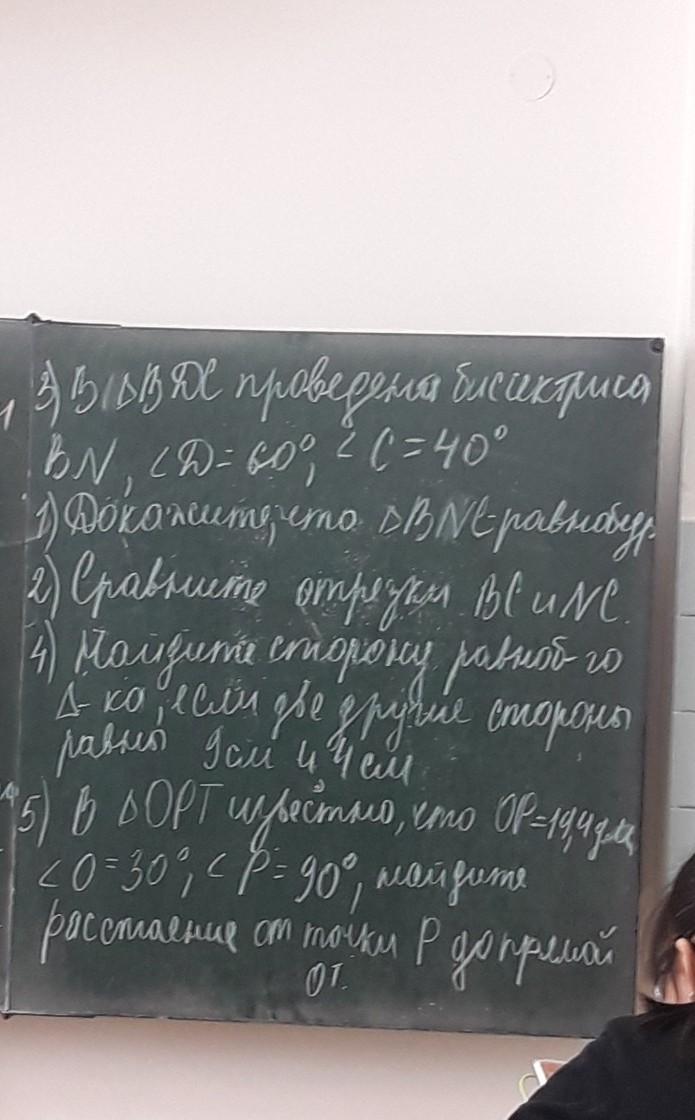 3) В ΔВDС проведена биссектриса
BN, ∠D=60°, ∠C=40°
1) Докажите, что ΔBNC-равнобедр
2) Сравните отрезки ВС и NC.
4) Найдите сторону равноб-го
Δ-ка, если две другие стороны
равны 9см и 4см
5) В ΔОРТ известно, что ОР=19,4дм,
∠О=30°, ∠Р=90°, найдите
расстояние от точки Р до прямой
ОТ.